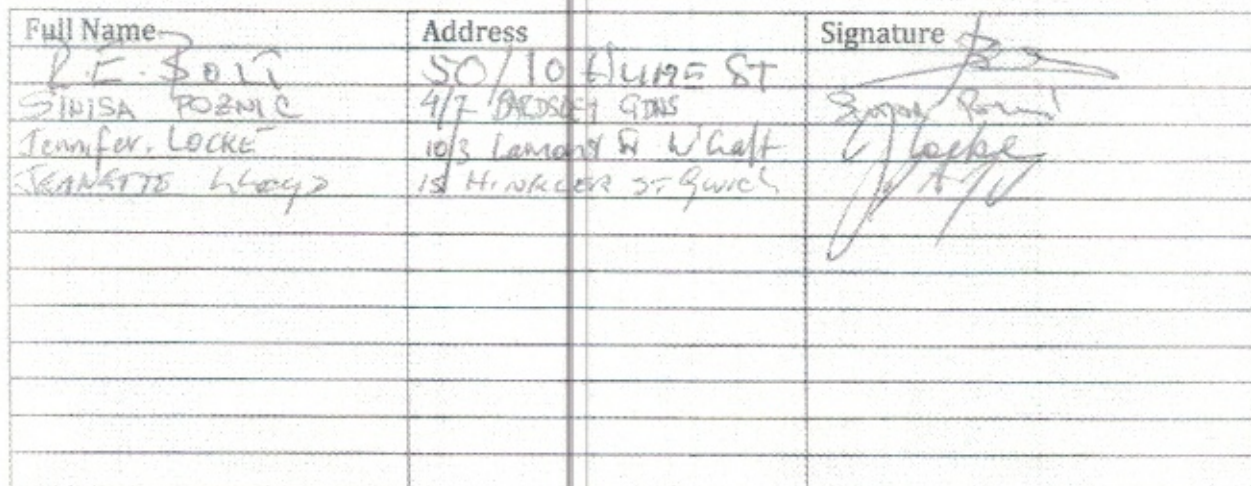 Full Name Address Signature
R.E. BOLT 50/10 HUME ST
SINISA POZNIC 4/7 BARDSLEY GDNS
Jennifer. LOCKE 10/3 Lamond St W'Craft J Locke
JEANETTE LLOYD 15 HINKLER ST Gwich